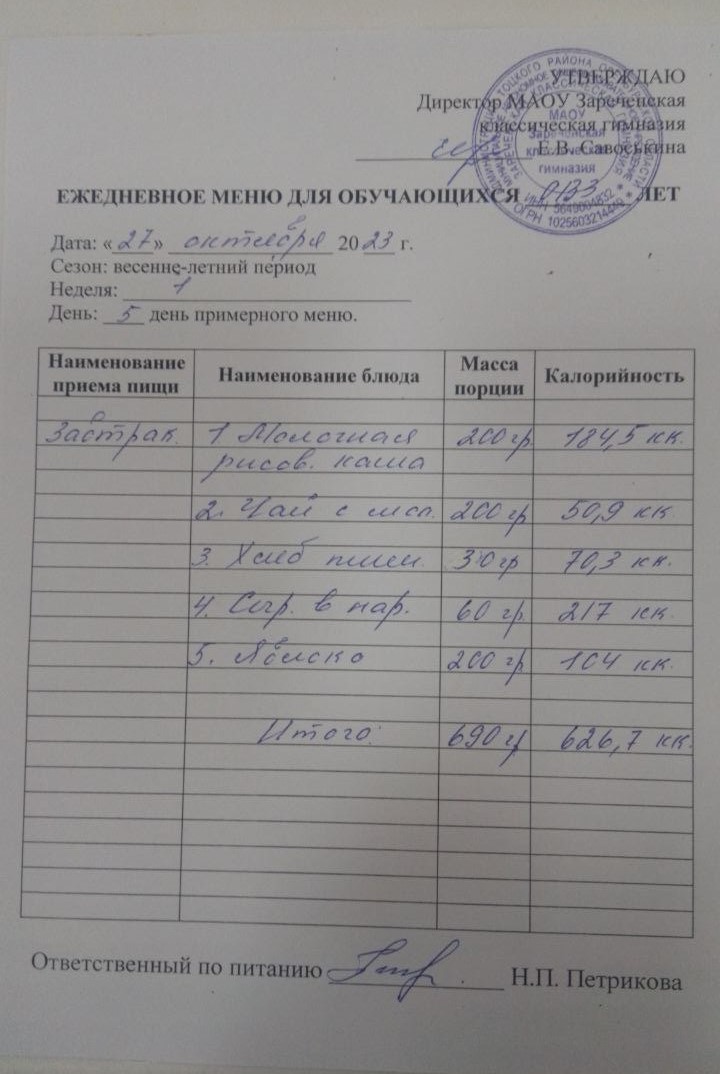 УТВЕРЖДАЮ
Директор МАОУ Зареченская
классическая гимназия
Е.В. Савоськина
МАОУ
Зареченская
классическая
гимназия
ИНН 5649004832
ОГРН 1025603214449
ЕЖЕДНЕВНОЕ МЕНЮ ДЛЯ ОБУЧАЮЩИХСЯ ЛЕТ
Дата: «27» октября 2023 г.
Сезон: весенне-летний период
Неделя: 1
День: 5 день примерного меню.
Наименование приема пищи Наименование блюда Масса порции Калорийность
Завтрак. 1 Молочная 200 гр. 184,5 кк.
рисов. каша
2. Чай с мол. 200 гр 50,9 кк
3. Хлеб пшен. 30 гр 70,3 кк.
4. в нар. 60 гр. 217 кк.
5. Яблоко 200 гр 104 кк.
Итого: 690 гр 626,7 кк.
Ответственный по питанию Н.П. Петрикова